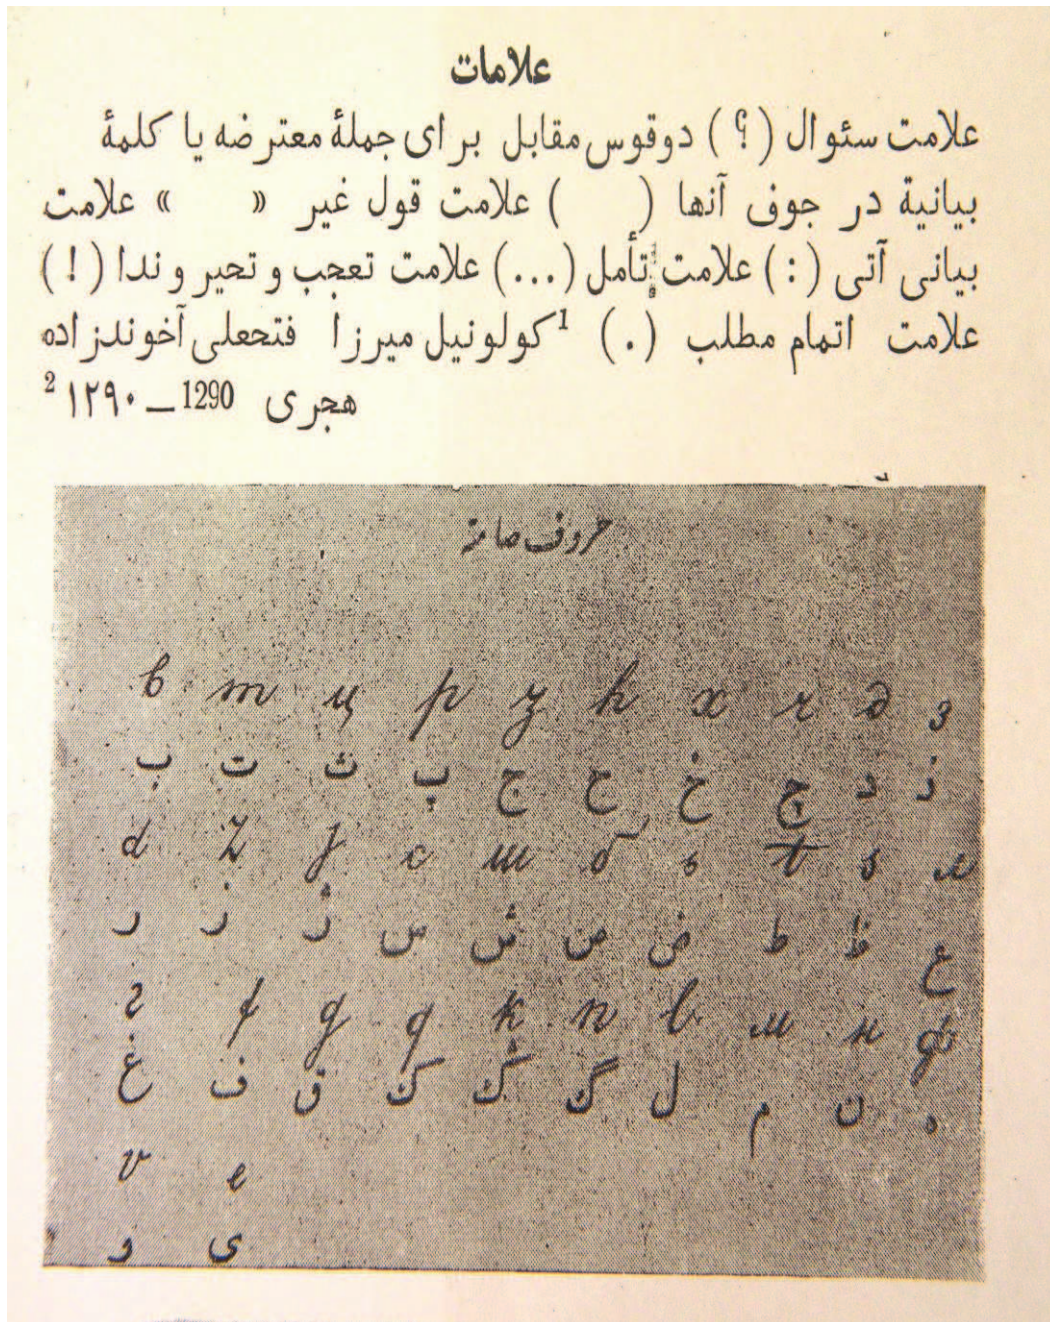 علامات
علامت سئوال (؟) دوقوس مقابل برای جملهٔ معترضه یا کلمهٔ
بیانیة در جوف آنها (     ) علامت قول غیر «     » علامت
بیانی آتی (:) علامت تأمل (...) علامت تعجب و تحیر و ندا (!)
علامت اتمام مطلب (.) 1 کولونیل میرزا فتحعلی آخوندزاده
هجری 1290 — ۱۲۹۰ 2
حروف صامته
b m ц p z h x r д з
ب ت ث پ ج ح خ چ د ذ
d z j c ш б s t s
ر ز ژ س ش ص ض ط ظ ع
2 f g q k n l м н ф
غ ف ق ک گ ل م ن ه
v e
و ی